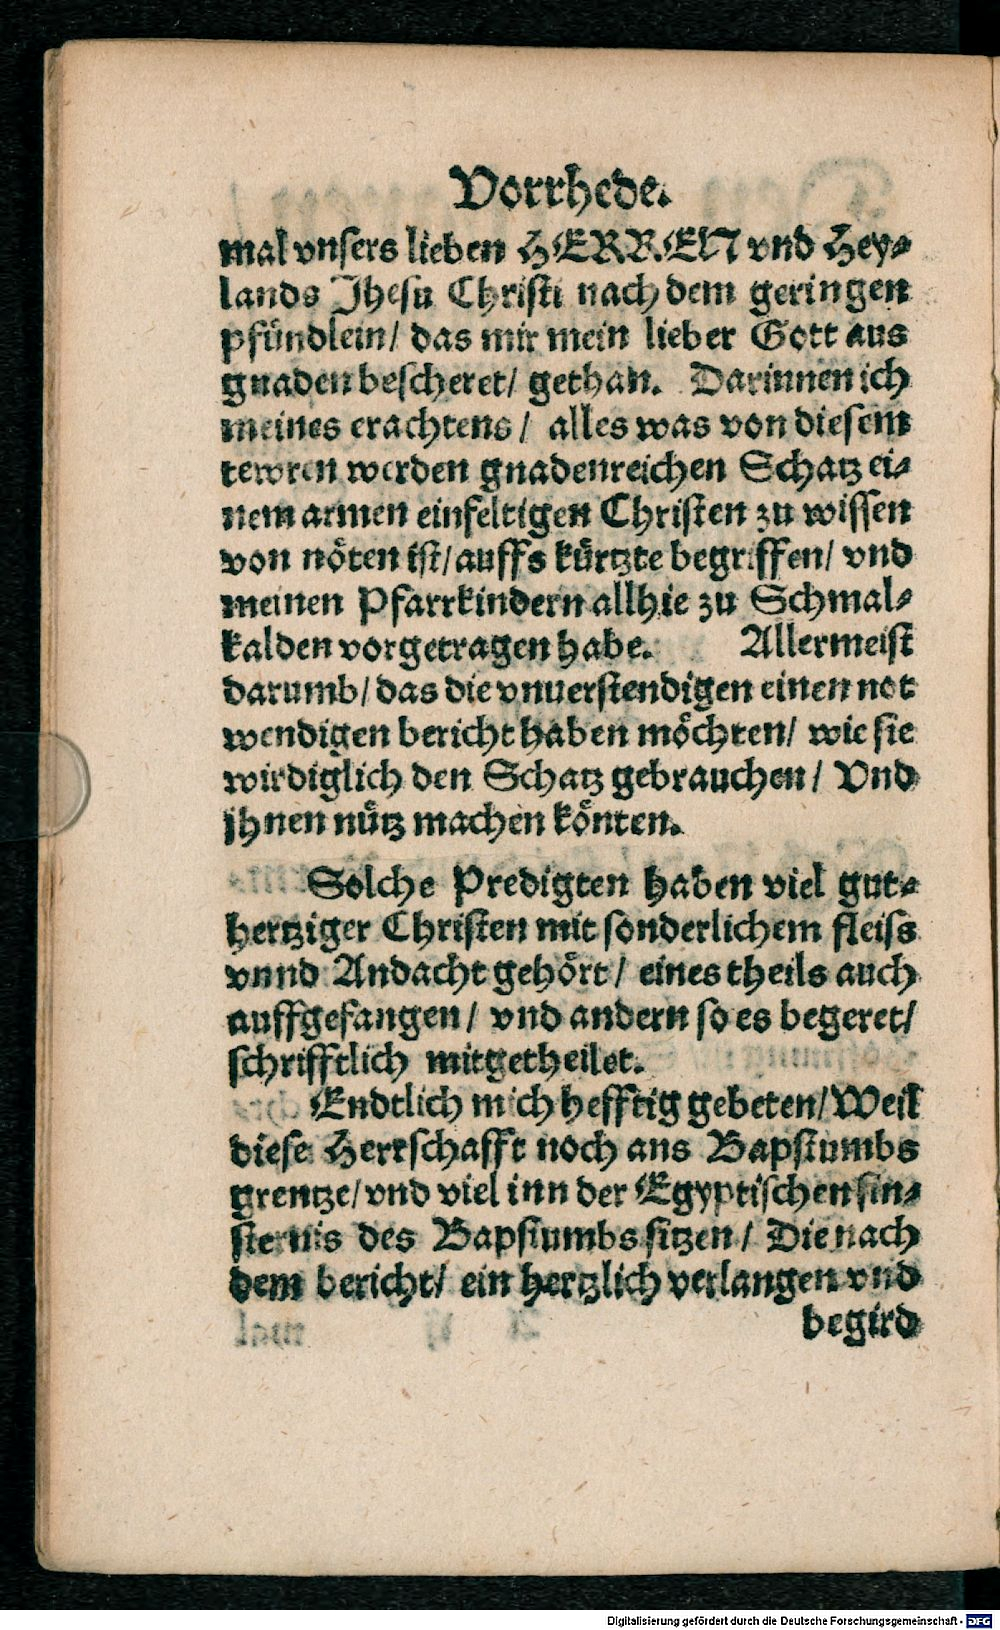 Vorrhede.
mal vnsers lieben HERREN vnd Hey-
lands Jhesu Christi nach dem geringen
pfündlein/ das mir mein lieber Gott aus
gnaden bescheret/ gethan. Darinnen ich
meines erachtens/ alles was von diesem
tewren werden gnadenreichen Schatz ei-
nem armen einfeltigen Christen zu wissen
von nöten ist/ auffs kürtzte begriffen/ vnd
meinen Pfarrkindern allhie zu Schmal-
kalden vorgetragen habe. Allermeist
darumb/ das die vnuerstendigen einen not
wendigen bericht haben möchten/ wie sie
wirdiglich den Schatz gebrauchen/ Vnd
jhnen nütz machen könten.
Solche Predigten haben viel gut-
hertziger Christen mit sonderlichem fleiss
vnnd Andacht gehört/ eines theils auch
auffgefangen/ vnd andern so es begeret/
schrifftlich mitgetheilet.
Endtlich mich hefftig gebeten/ Weil
diese Herrschafft noch ans Bapstumbs
grentze/ vnd viel inn der Egyptischen fin-
sternis des Bapstumbs sitzen/ Die nach
dem bericht/ ein hertzlich verlangen vnd
begird
Digitalisierung gefördert durch die Deutsche Forschungsgemeinschaft - DFG